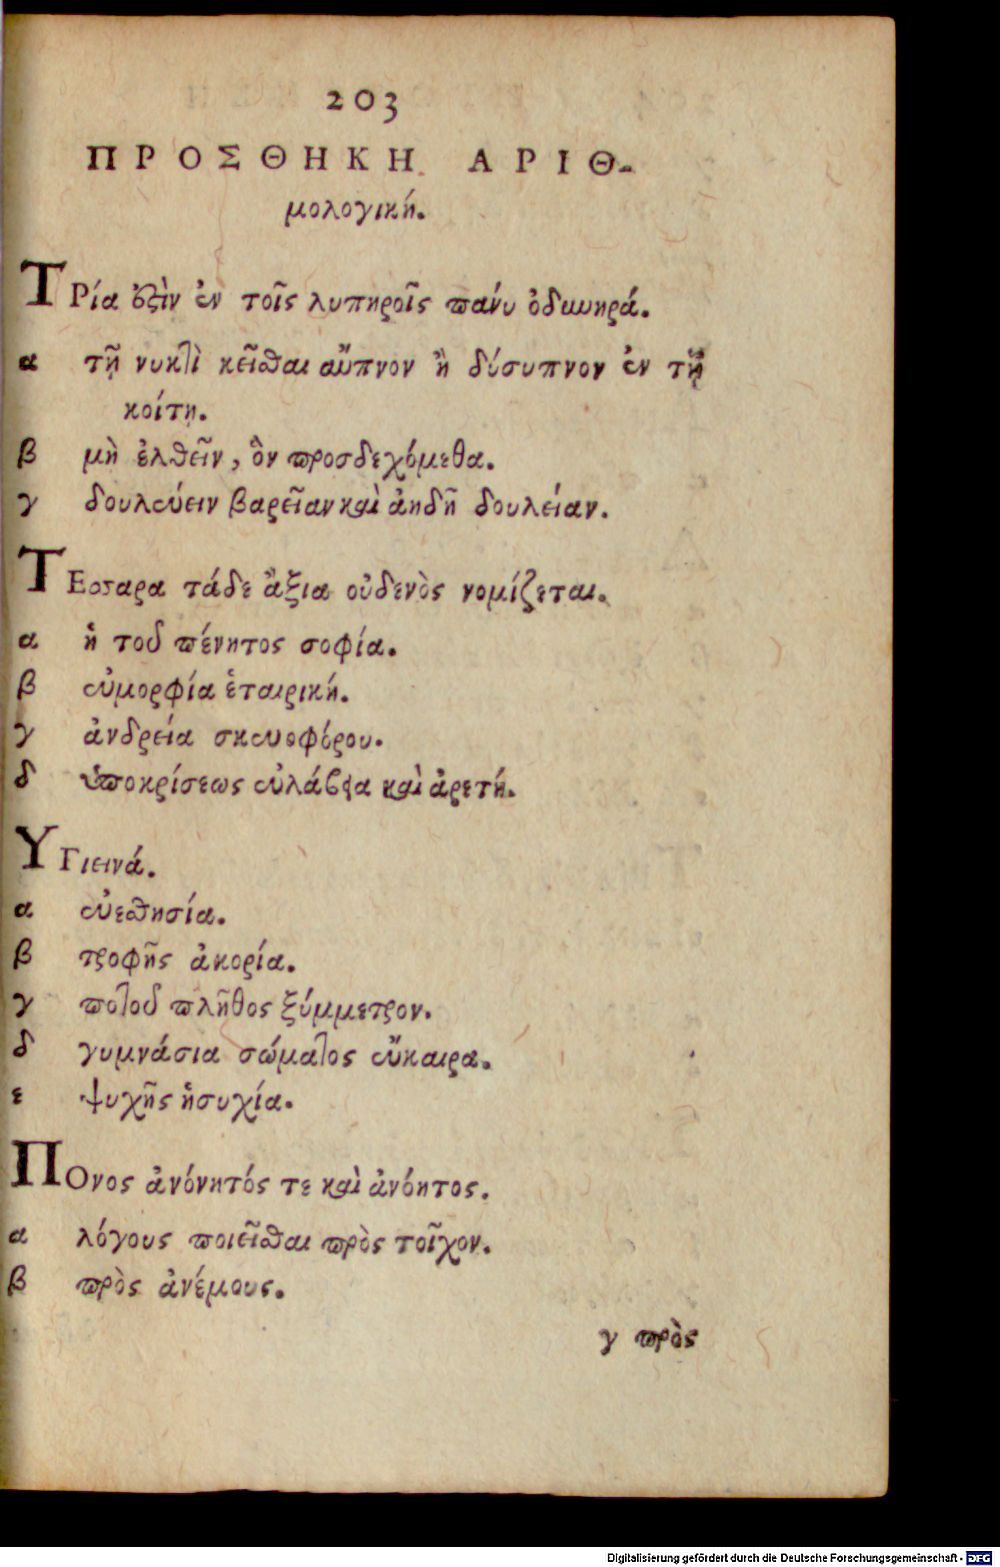 203
ΠΡΟΣΘΗΚΗ ΑΡΙΘ-
μολογική.
ΤΡία ὅξιν ἐν τοῖς λυπηροῖς πάνυ ὀδυνηρά.
α τῇ νυκτὶ κεῖσθαι αὔπνον ἢ δύσυπνον ἐν τῇ
κοίτῃ.
β μὴ ἐλθεῖν, ὃν προσδεχόμεθα.
γ δουλεύειν βαρεῖαν καὶ ἀηδῆ δουλείαν.
ΤΕσσαρα τάδε ἄξια οὐδενὸς νομίζεται.
α ἡ τοῦ πένητος σοφία.
β εὐμορφία ἑταιρική.
γ ἀνδρεία σκευοφόρου.
δ ὑποκρίσεως εὐλάβεια καὶ ἀρετή.
ΥΓιεινά.
α εὐεσθησία.
β τροφῆς ἀκορία.
γ ποτοῦ πλῆθος ξύμμετρον.
δ γυμνάσια σώματος εὔκαιρα.
ε ψυχῆς ἡσυχία.
ΠΟνος ἀνόνητός τε καὶ ἀνόητος.
α λόγους ποιεῖσθαι πρὸς τοῖχον.
β πρὸς ἀνέμους.
γ πρὸς
Digitalisierung gefördert durch die Deutsche Forschungsgemeinschaft - DFG